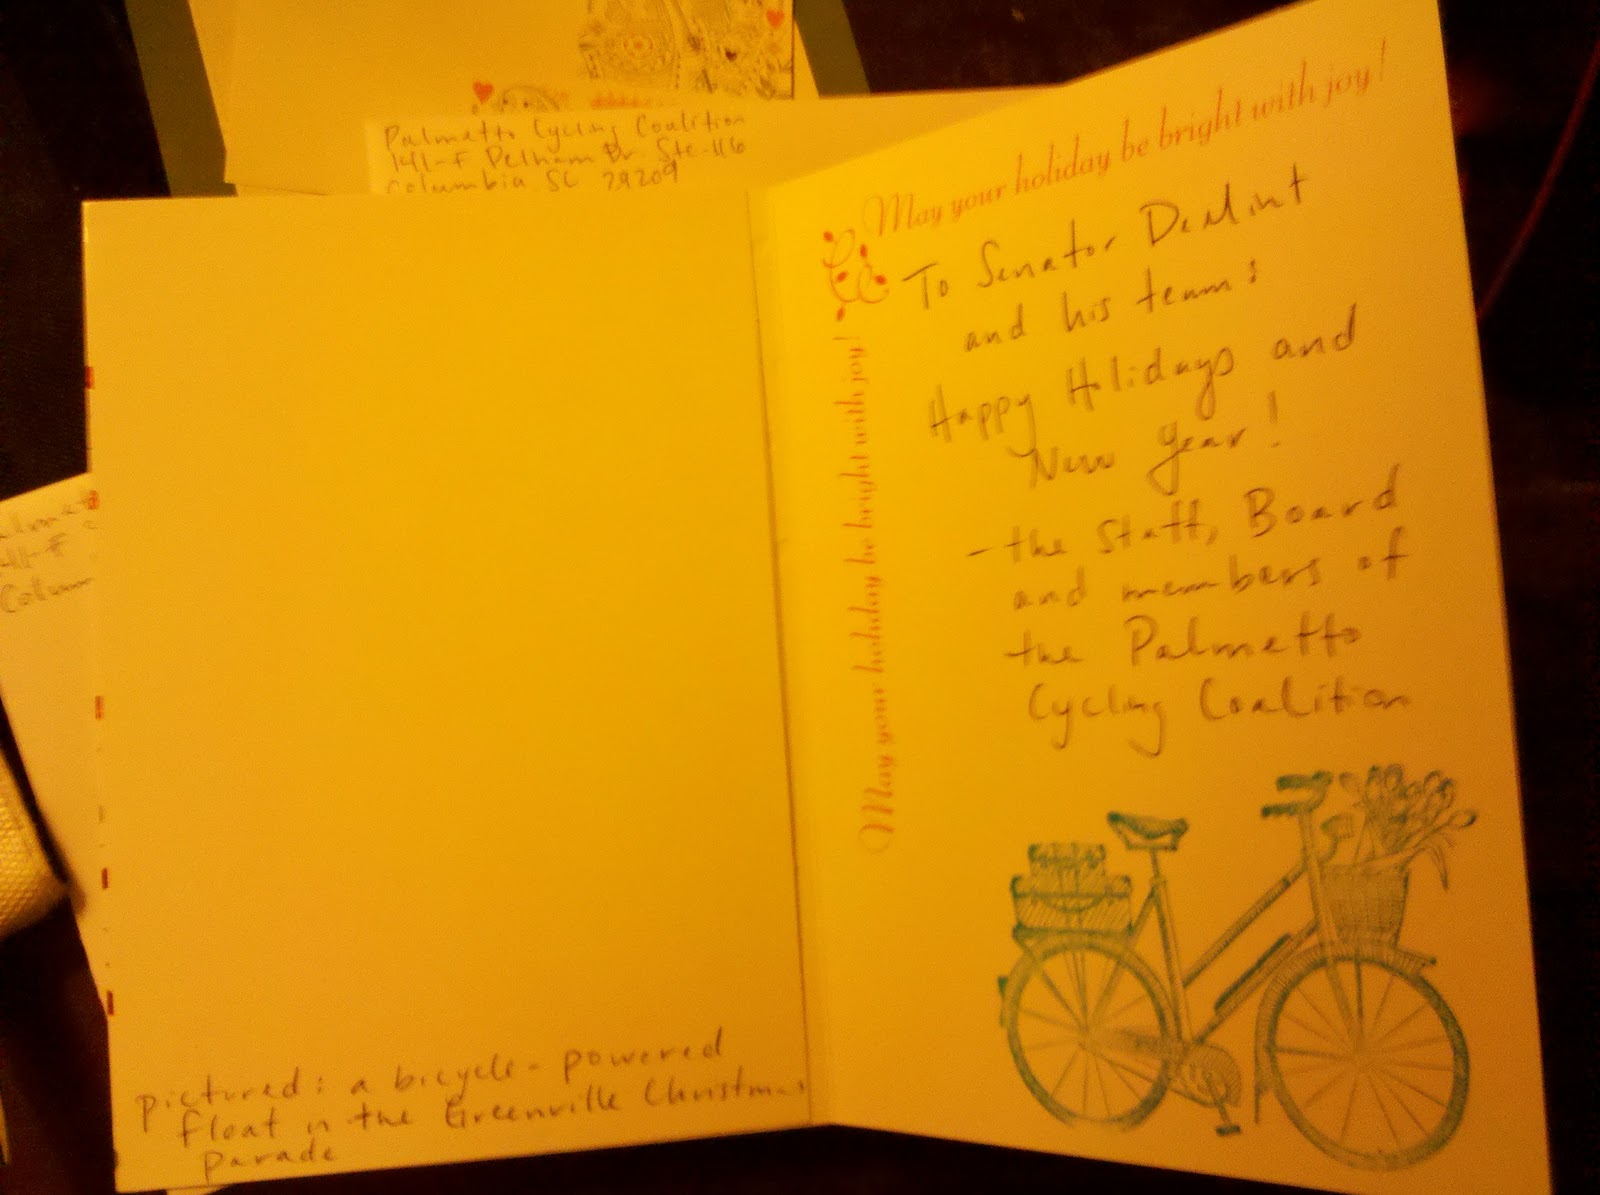 Palmetto Cycling Coalition
141-F Pelham Dr. Ste-116
Columbia SC 29209
May your holiday be bright with joy!
May your holiday be bright with joy!
To Senator DeMint
and his team:
Happy Holidays and
New Year!
- the Staff, Board
and members of
the Palmetto
Cycling Coalition
pictured: a bicycle-powered
float in the Greenville Christmas
parade
41-F
Colum